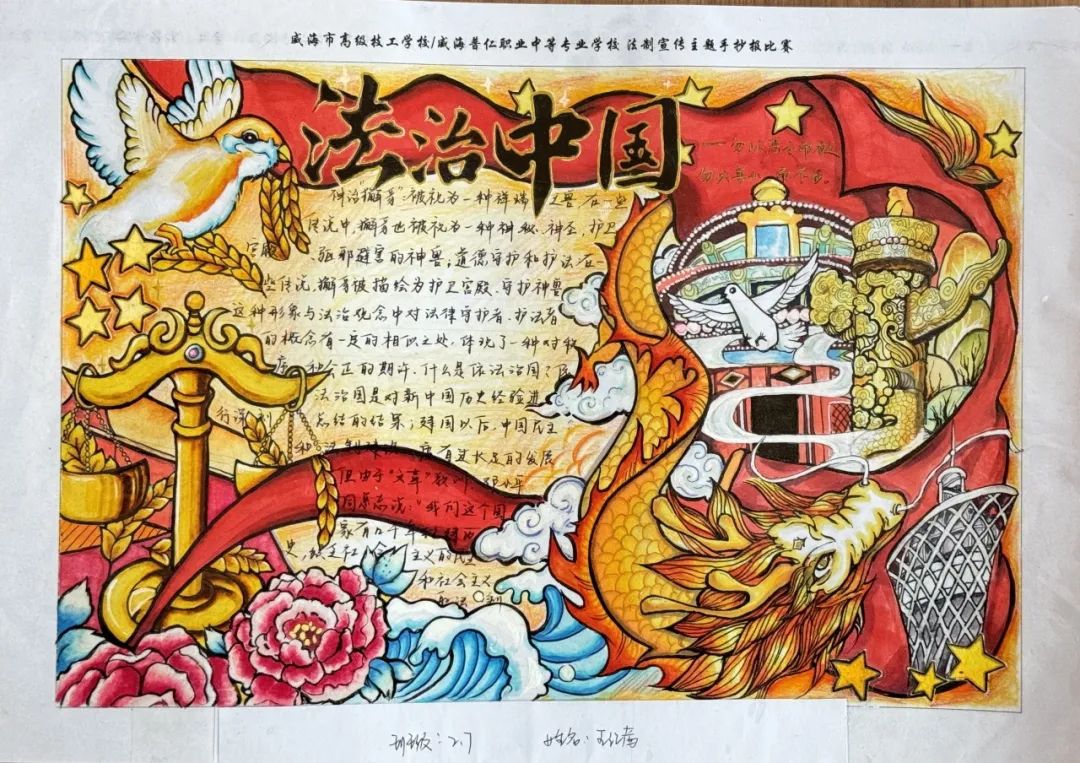 威海市高级技工学校/威海普仁职业中等专业学校 法制宣传主题手抄报比赛
法治中国
勿以
勿以善小而不为。
被视为一种祥瑞之兽 在一些
传说中,獬豸也被视为一种神秘、神圣,护卫
宫殿
驱邪避害的神兽;道德守护和护法在
些传说,獬豸被描绘为护卫宫殿、守护神兽
这种形象与法治观念中对法律守护者、护法者
的概念有一定的相似之处,体现了一种对秩
序 公正的期许。什么是依法治国?依
法治国是对新中国历史经验进
行深刻
总结的结果;建国以后,中国民主
和法制建设 有过长足的发展
但由于“文革”
同志说:“我们这个国
家有几千年
史,缺乏社会主义的民主
和社会主义
班级:2.7 姓名:王